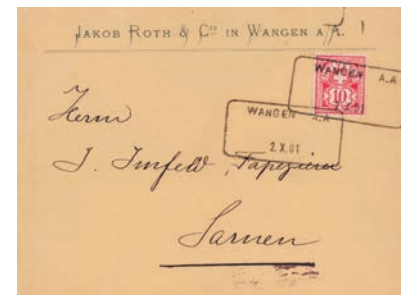 JAKOB ROTH & Cie IN WANGEN a/A.
WANGEN A.A
10
WANGEN A.A
2.X.01
Herrn
J. Imfeld, Tapezierer
Sarnen